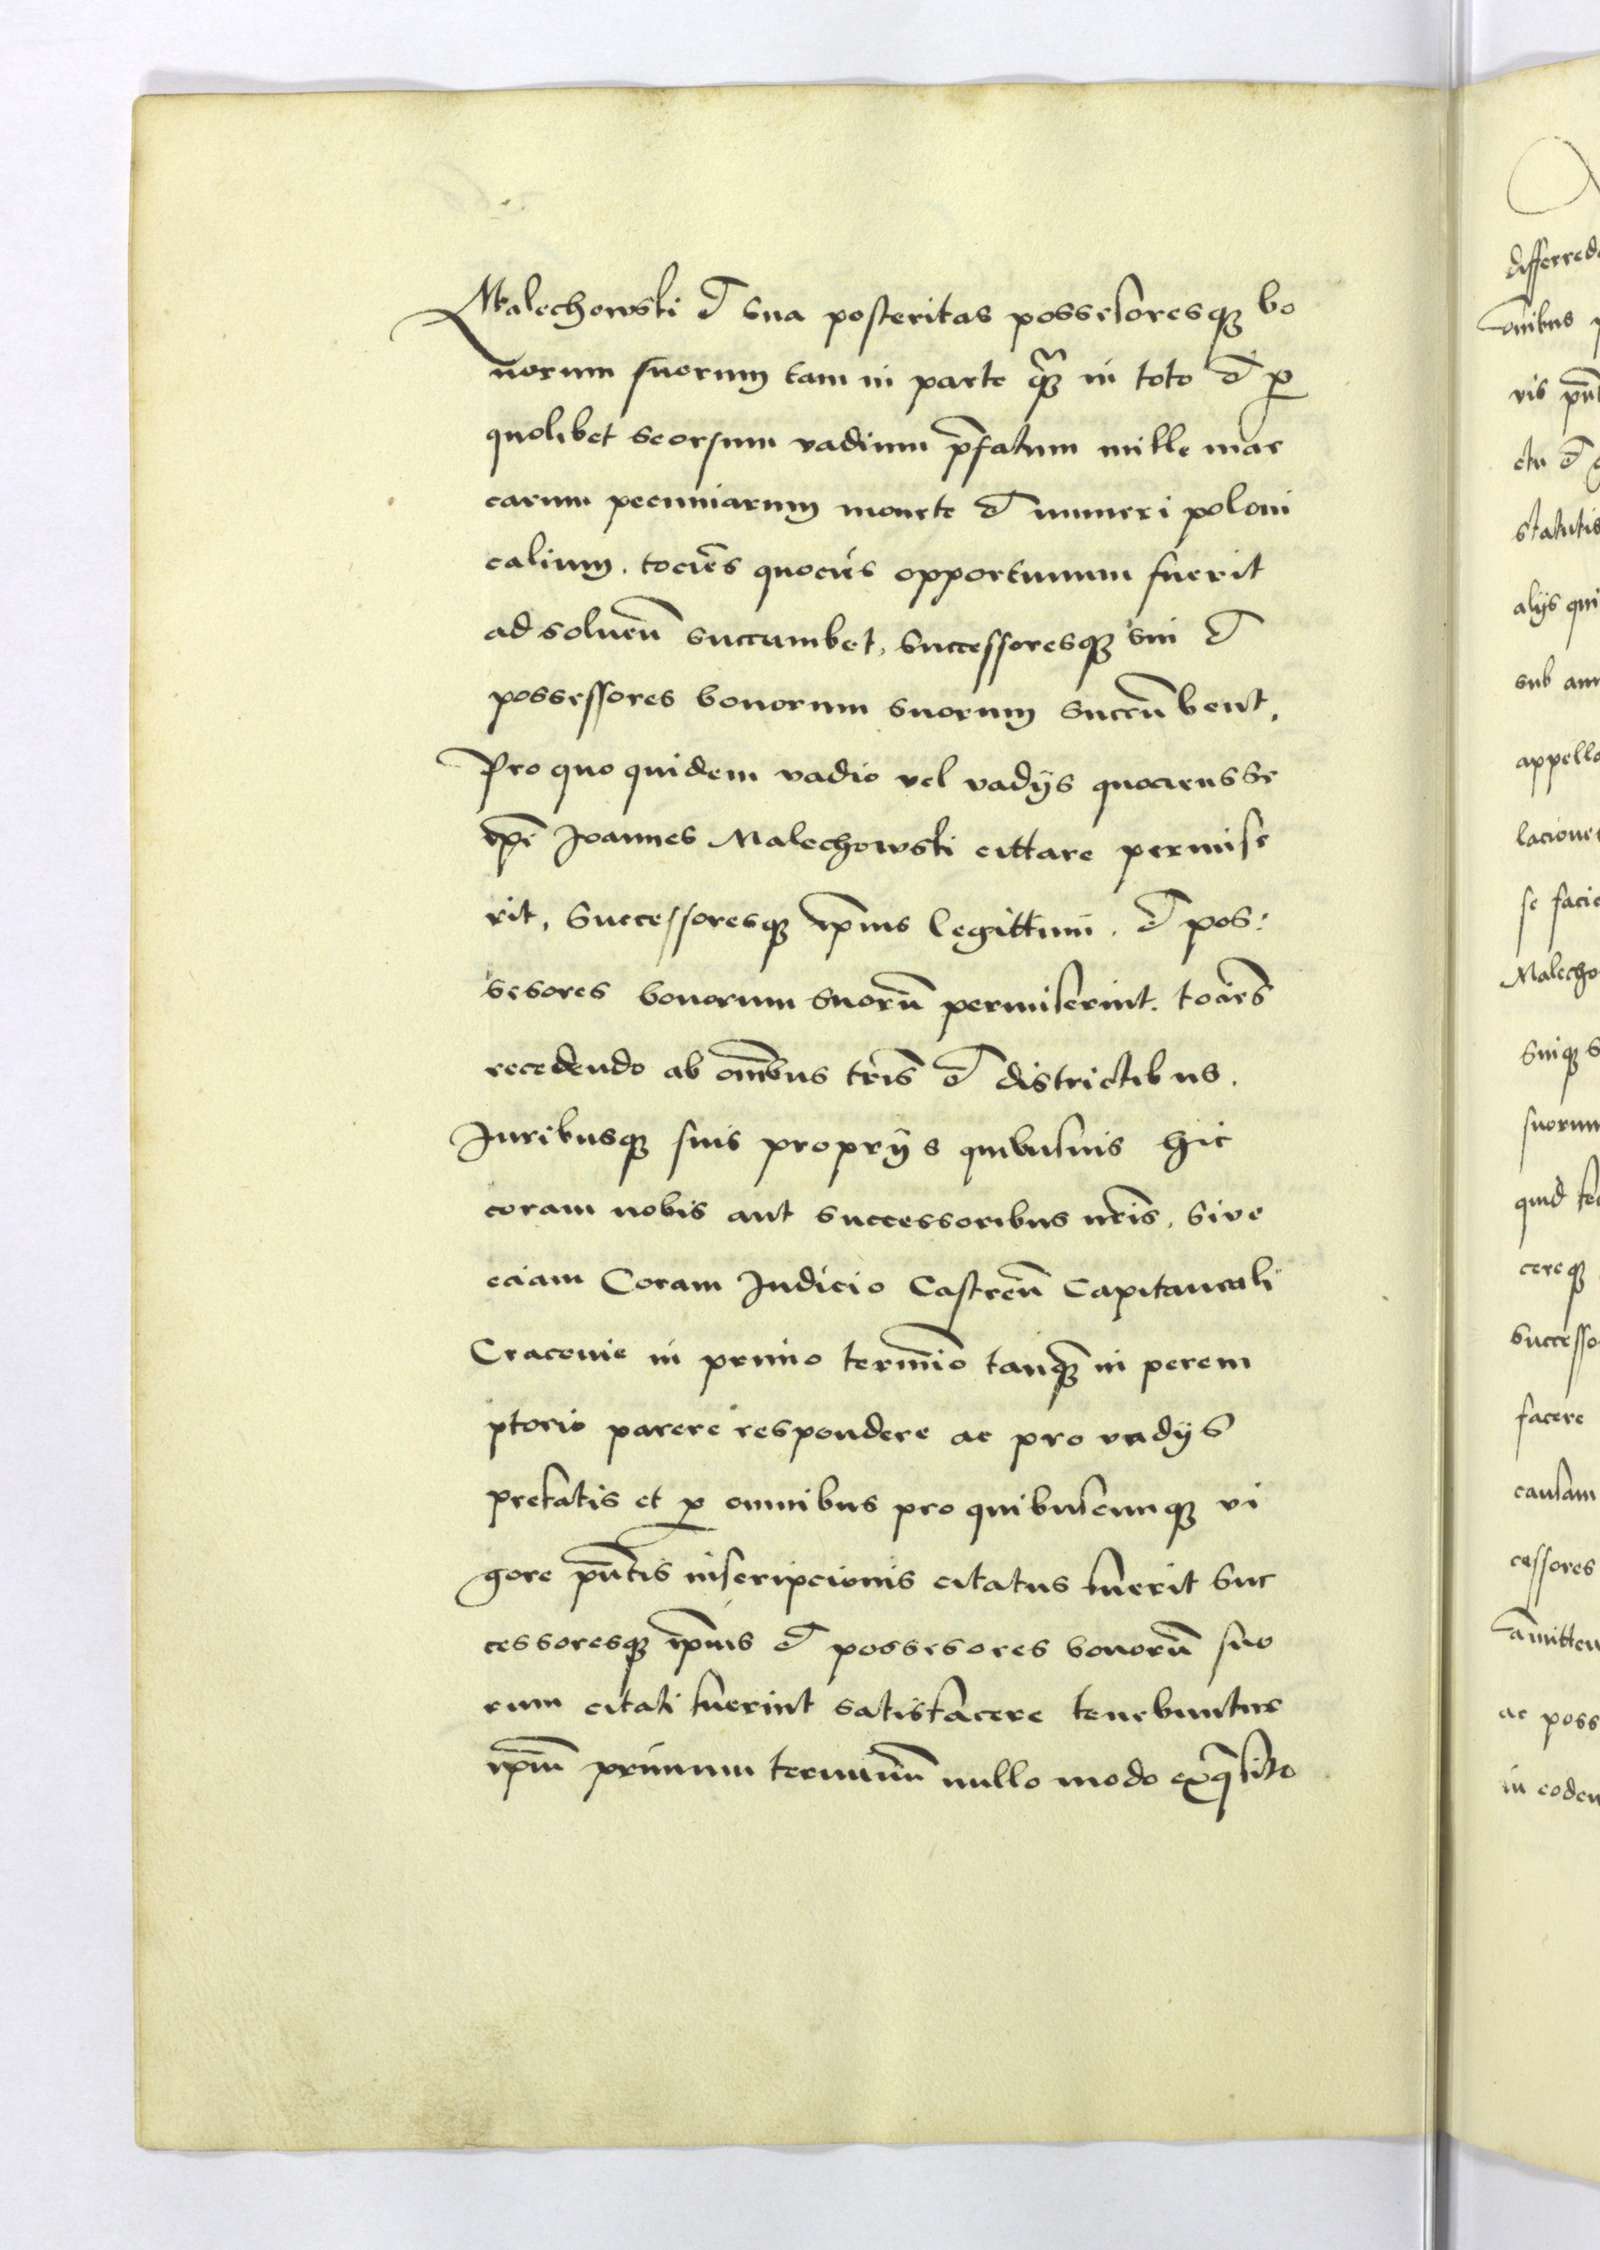 Malechowski et sua posteritas possesoresq̃ bo
norum suorum tam in parte q̃ in toto et p
quolibet seorsum vadium p̄fatum mille mar
carum pecuniarum monete et numeri poloni
calium. tociēs quociēs opportunum fuerit
ad solueñ succumbet, successoresq̃ sui et
possessores bonorum suorum succūbent.
Pro quo quidem vadio vel vadÿs quociens se
ip̄e Joannes Malechowski cittare permise
rit, successoresq̃ ip̄ius legittimi. et pos:
sesores bonorum suorū permiserint. tociēs
recedendo ab om̄ibus tr̄is et districtibus.
Juribusq̃ suis proprÿs quibusuis hic
coram nobis aut successoribus nr̄is, sive
eciam Coram Judicio Castreñ Capitaneali
Cracouie in primo term̄io tanq̃ in perem
ptorio parere respondere ac pro vadÿs
prefatis et p omnibus pro quibuscunq̃ vi
gore pn̄tis inscripcionis citatus fuerit suc
cessoresq̃ ip̄ius et possesores bonorū suo
rum citati fuerint satisfacere tenebuntur
ip̄m primum terminū nullo modo exq̄sito
differred
om̄ibus
vis pn̄t
ctu et
statutis
alÿs qui
sub ann
appella
lacione
se facie
Malecho
suiq̃ s
suorum
quid
cereq̃
successo
facere
causam
cessores
amitten
ac poss
in eodem